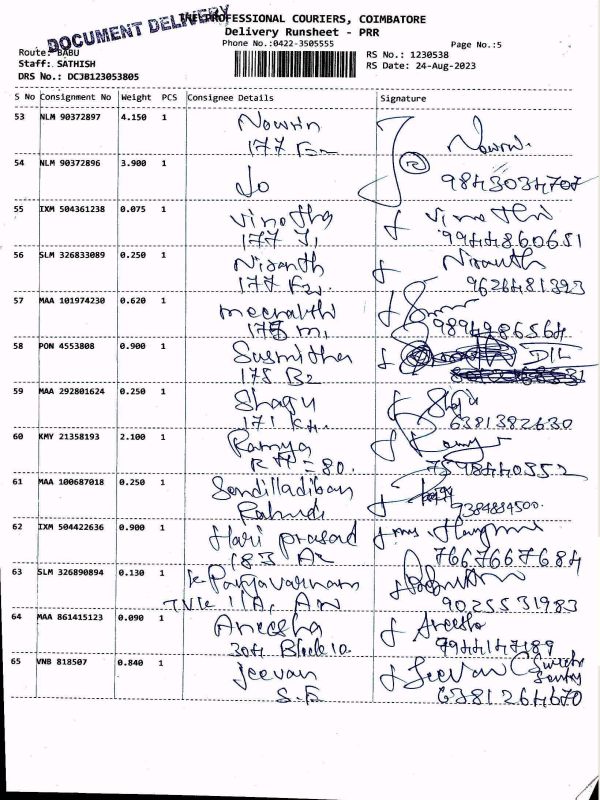 DOCUMENT DELIVERY
THE PROFESSIONAL COURIERS, COIMBATORE
Delivery Runsheet - PRR
Phone No.:0422-3505555
Page No.:5
Route: BABU
RS No.: 1230538
Staff: SATHISH
RS Date: 24-Aug-2023
DRS No.: DCJB123053805
S No Consignment No Weight PCS Consignee Details Signature
53 NLM 90372897 4.150 1 Nowrin
177 F2
54 NLM 90372896 3.900 1 do
9843034707
55 IXM 504361238 0.075 1 Vinotha Vinothi
177 J1 9944860651
56 SLM 326833089 0.250 1 Nisanth Nisanth
177 F2 9626481393
57 MAA 101974230 0.620 1 meenakthi
175 m1 9894986564
58 PON 4553808 0.900 1 Susmitha DIL
175 B2
59 MAA 292801624 0.250 1 Shagu
171 K4 6381382630
60 KMY 21358193 2.100 1 Ramya Ramya
RH = 80. 7598440352
61 MAA 100687018 0.250 1 Sendilladiban
9384884500
62 IXM 504422636 0.900 1 Hari prasad
183 A2 7667667684
63 SLM 326890894 0.130 1
TVK 11A, AN 9025531983
64 MAA 861415123 0.090 1 Aneesha Aneesha
304 Block 10 9944147189
65 VNB 818507 0.840 1 Jeevan Jeevan
S.F 6381264670